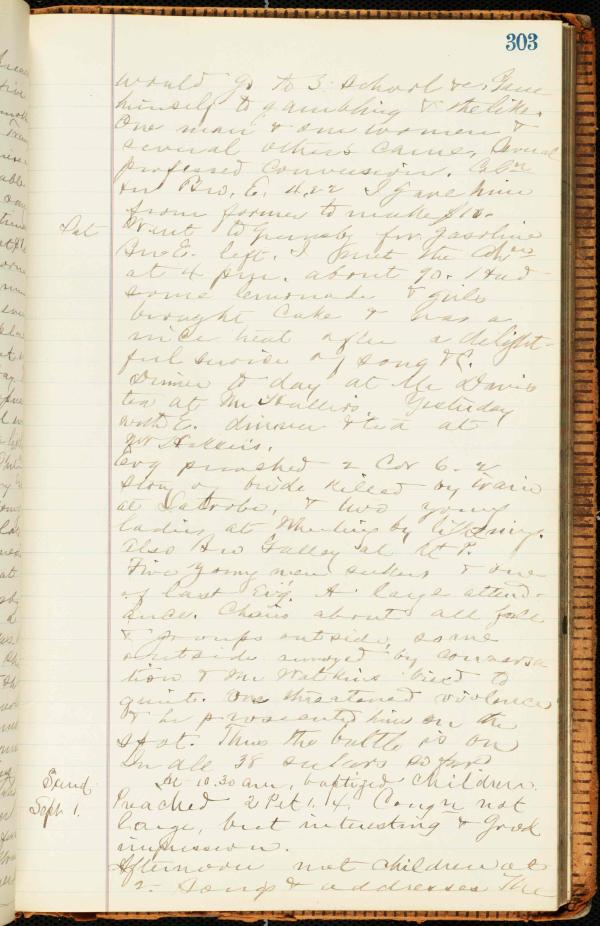 303
would go to S. School &c. Gave
himself to gambling & the like.
One man & one women &
several others came, Several
professed conversion. Coln
for Bro. E. 4.22 I gave him
from former to make $10.
Sat Went to for gasoline
Bro E. left. I met the Chn
at 4 p.m. about 90. Had
some lemonade & girls
brought cake & was a
nice treat after a delight-
ful service of song &c.
Dinner to day at Mr Davis
tea at Mr Yesterday
with E. dinner & tea at
Mr
Evg preached 2 Cor 6-2
Story of bride killed by train
at Latrobe, & two young
ladies at by lightning.
also Bro at Pt P.
Five young men seekers & one
of last Ev'g. A large attend-
ance. Chairs about all full
& groups outside, some
outside annoyed by conversa
tion & Mr Watkins tried to
quiet. One threatened violence
& he prosecuted him on the
spot. Thus the battle is on
In all 38 seekers so far
Sund. At 10.30 am, baptized children.
Sept 1. Preached 2 Pet 1.4. Congn not
large, but interesting & good
impression.
Afternoon met children at
2- Songs & addresses The